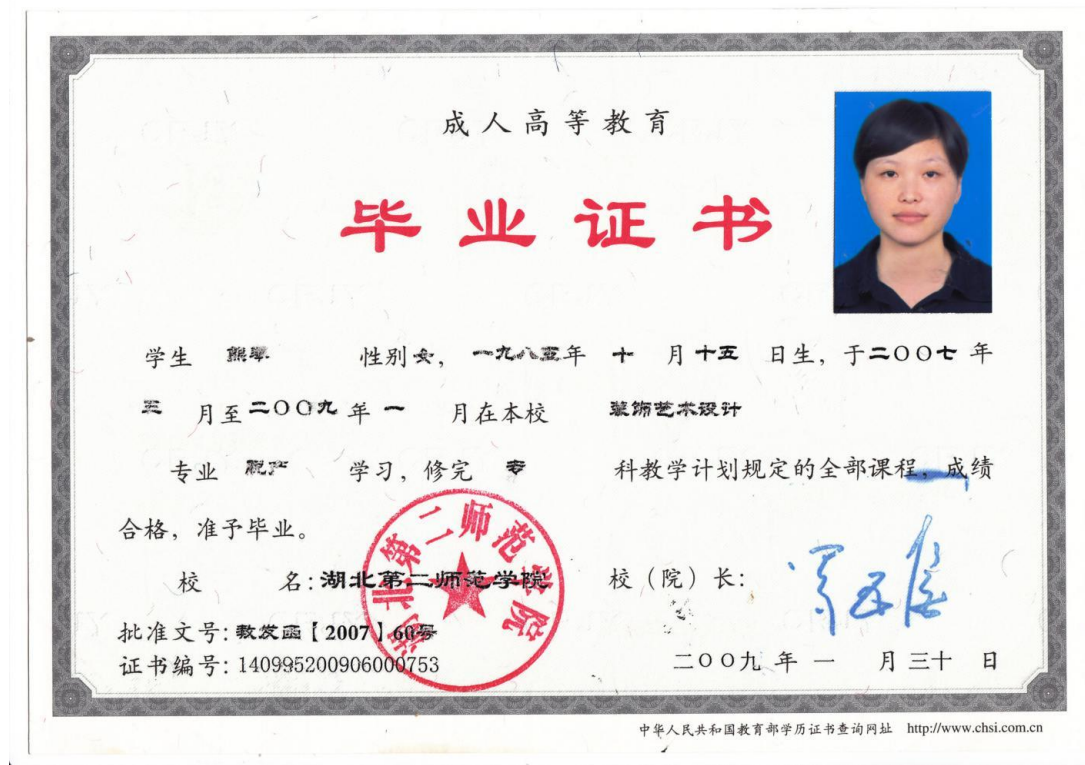 成人高等教育
毕业证书
学生 熊翠 性别女，一九八五年 十 月十五 日生，于二〇〇七 年
三 月至二〇〇九 年 一 月在本校 装饰艺术设计
专业 脱产 学习，修完 专 科教学计划规定的全部课程，成绩
合格，准予毕业。
校 名：湖北第二师范学院 校（院）长：
湖北第二师范学院
批准文号：教发函【2007】60号
证书编号：140995200906000753
二〇〇九 年 一 月 三十 日
中华人民共和国教育部学历证书查询网址 http://www.chsi.com.cn